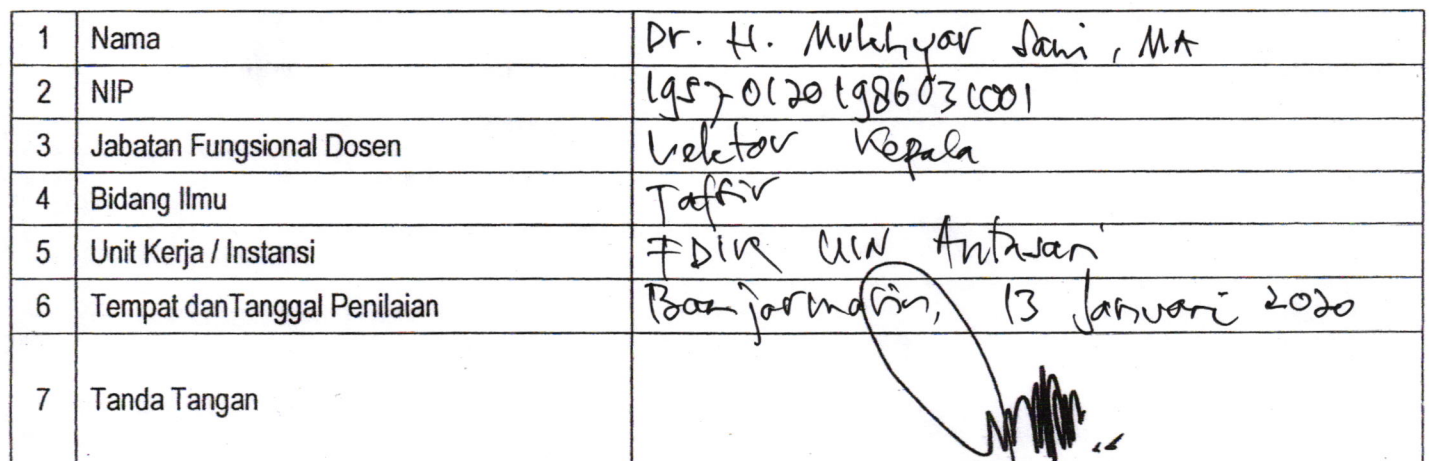 1 Nama Dr. H. Mukhyar Sani, MA
2 NIP 195701201986031001
3 Jabatan Fungsional Dosen Lektor Kepala
4 Bidang Ilmu Tafsir
5 Unit Kerja / Instansi FDIK UIN Antasari
6 Tempat danTanggal Penilaian Banjarmasin, 13 Januari 2020
7 Tanda Tangan